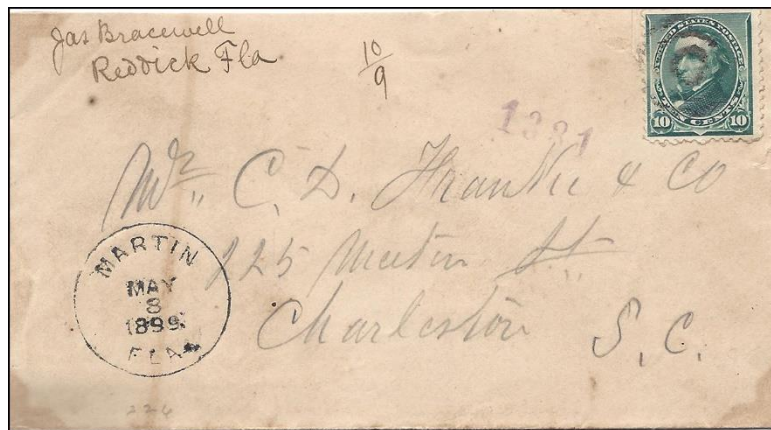 Jas Bracewell
Reddick Fla
10
9
UNITED STATES POSTAGE
10 TEN CENTS 10
1381
Mr. C. D. Franke & Co
225 Meeting St
Charleston S.C.
MARTIN
MAY
8
1899
FLA